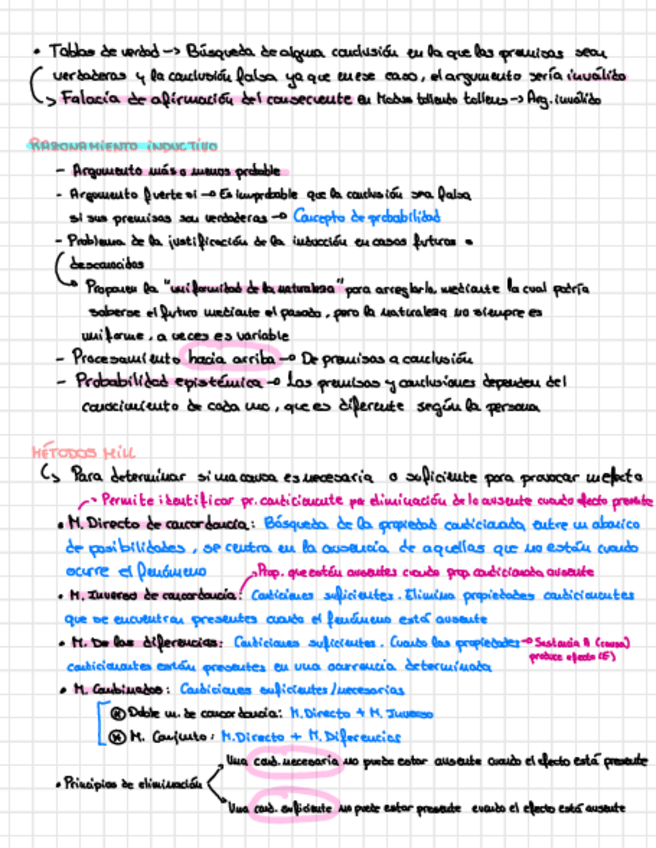 • Tablas de verdad -> Búsqueda de alguna conclusión en la que las premisas sean
verdaderas y la conclusión falsa ya que en ese caso, el argumento sería inválido
↳ Falacia de afirmación del consecuente en Modus tollendo tollens -> Arg. inválido
RAZONAMIENTO INDUCTIVO
- Argumento más o menos probable
- Argumento fuerte si -> Es improbable que la conclusión sea falsa
si sus premisas son verdaderas -> Concepto de probabilidad
- Problema de la justificación de la inducción en casos futuros o
desconocidos
↳ Proponen la "uniformidad de la naturaleza" para arreglarlo, mediante la cual podría
saberse el futuro mediante el pasado, pero la naturaleza no siempre es
uniforme, a veces es variable
- Procesamiento hacia arriba -> De premisas a conclusión
- Probabilidad epistémica -> Las premisas y conclusiones dependen del
conocimiento de cada uno, que es diferente según la persona
MÉTODOS MILL
↳ Para determinar si una causa es necesaria o suficiente para provocar un efecto
-> Permite identificar pr. condicionante por eliminación de lo ausente cuando efecto presente
• M. Directo de concordancia: Búsqueda de la propiedad condicionada entre un abanico
de posibilidades, se centra en la ausencia de aquellas que no están cuando
ocurre el fenómeno
-> Prop. que estén ausentes cuando prop. condicionada ausente
• M. Inverso de concordancia: Condiciones suficientes. Elimina propiedades condicionantes
que se encuentran presentes cuando el fenómeno está ausente
• M. De las diferencias: Condiciones suficientes. Cuando las propiedades -> Sustancia A (causa)
produce efecto (E)
condicionantes están presentes en una ocurrencia determinada
• M. Combinados: Condiciones suficientes/necesarias
⊗ Doble m. de concordancia: M. Directo + M. Inverso
⊗ M. Conjunto: M. Directo + M. Diferencias
Una cond. necesaria no puede estar ausente cuando el efecto está presente
• Principios de eliminación
Una cond. suficiente no puede estar presente cuando el efecto está ausente